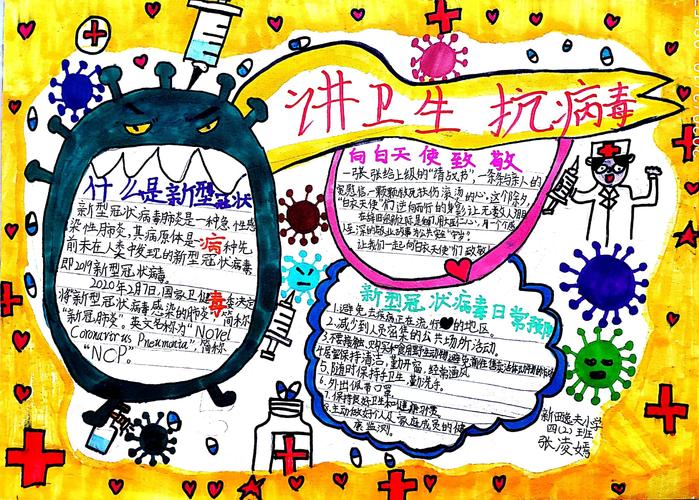 讲卫生 抗病毒
什么是新型冠状
病
毒
新型冠状病毒肺炎是一种急性感
染性肺炎,其病原体是一种先
前未在人类中发现的新型冠状病毒
即2019新型冠状病毒。
2020年2月7日,国家卫健委决定
将"新型冠状病毒感染的肺炎"简称
"新冠肺炎"。英文名称为"Novel
Coronavirus Pneumonia",简称
"NCP"。
向白天使致敬
一张张给上级的"请战书",一条条与亲人的
"白衣天使"们逆向而行的身影让无数人泪目
让我们一起向白衣天使们致敬
新型冠状病毒日常预防
1.避免去疾病正在流行的地区。
2.减少到人员密集的公共场所活动。
4.居室保持清洁,勤开窗,经常通风
5.随时保持手卫生,勤洗手。
6.外出佩戴口罩
7.保持良好卫生和健康习惯
8.主动做好个人与家庭成员的健
康监测。
新田逸夫小学
四(2)班
张凌嫣